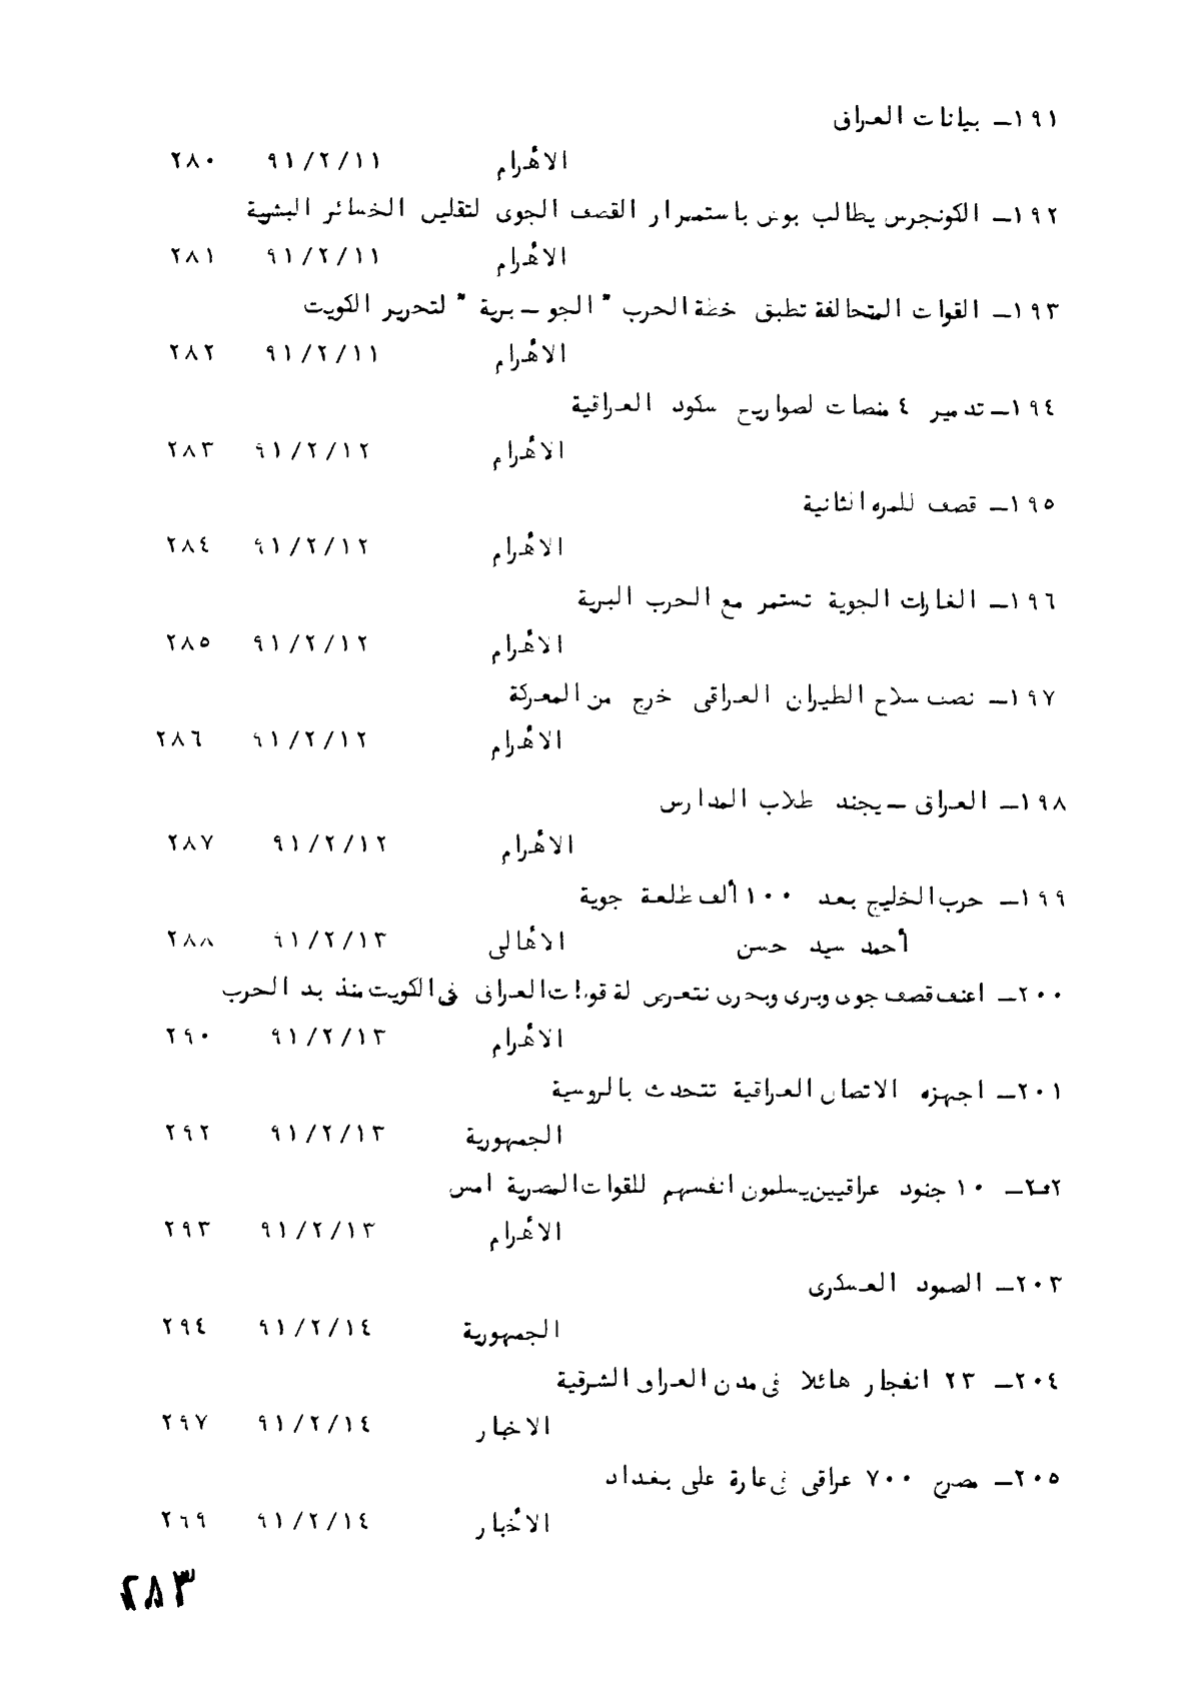 ١٩١ـ بيانات العراق
الأهرام ٩١/٢/١١ ٢٨٠
١٩٢ـ الكونجرس يطالب بوش باستمرار القصف الجوى لتقليل الخسائر البشرية
الأهرام ٩١/٢/١١ ٢٨١
١٩٣ـ القوات المتحالفة تطبق خطة الحرب " الجو ـ برية " لتحرير الكويت
الأهرام ٩١/٢/١١ ٢٨٢
١٩٤ـ تدمير ٤ منصات لصواريخ سكود العراقية
الأهرام ٩١/٢/١٢ ٢٨٣
١٩٥ـ قصف للمره الثانية
الأهرام ٩١/٢/١٢ ٢٨٤
١٩٦ـ الغارات الجوية تستمر مع الحرب البرية
الأهرام ٩١/٢/١٢ ٢٨٥
١٩٧ـ نصف سلاح الطيران العراقى خرج من المعركة
الأهرام ٩١/٢/١٢ ٢٨٦
١٩٨ـ العراق ـ يجند طلاب المدارس
الأهرام ٩١/٢/١٢ ٢٨٧
١٩٩ـ حرب الخليج بعد ١٠٠ ألف طلعة جوية
أحمد سيد حسن الأهالى ٩١/٢/١٣ ٢٨٨
٢٠٠ـ اعنف قصف جوى وبرى وبحرى تتعرض لة قوات العراق فى الكويت منذ بد الحرب
الأهرام ٩١/٢/١٣ ٢٩٠
٢٠١ـ اجهزه الاتصال العراقية تتحدث بالروسية
الجمهورية ٩١/٢/١٣ ٢٩٢
٢٠٢ـ ١٠ جنود عراقيين يسلمون انفسهم للقوات المصرية امس
الأهرام ٩١/٢/١٣ ٢٩٣
٢٠٣ـ الصمود العسكرى
الجمهورية ٩١/٢/١٤ ٢٩٤
٢٠٤ـ ٢٣ انفجار هائلا فى مدن العراق الشرقية
الاخبار ٩١/٢/١٤ ٢٩٧
٢٠٥ـ مصرع ٧٠٠ عراقى فى غارة على بغداد
الأخبار ٩١/٢/١٤ ٢٦٩
٢٨٣